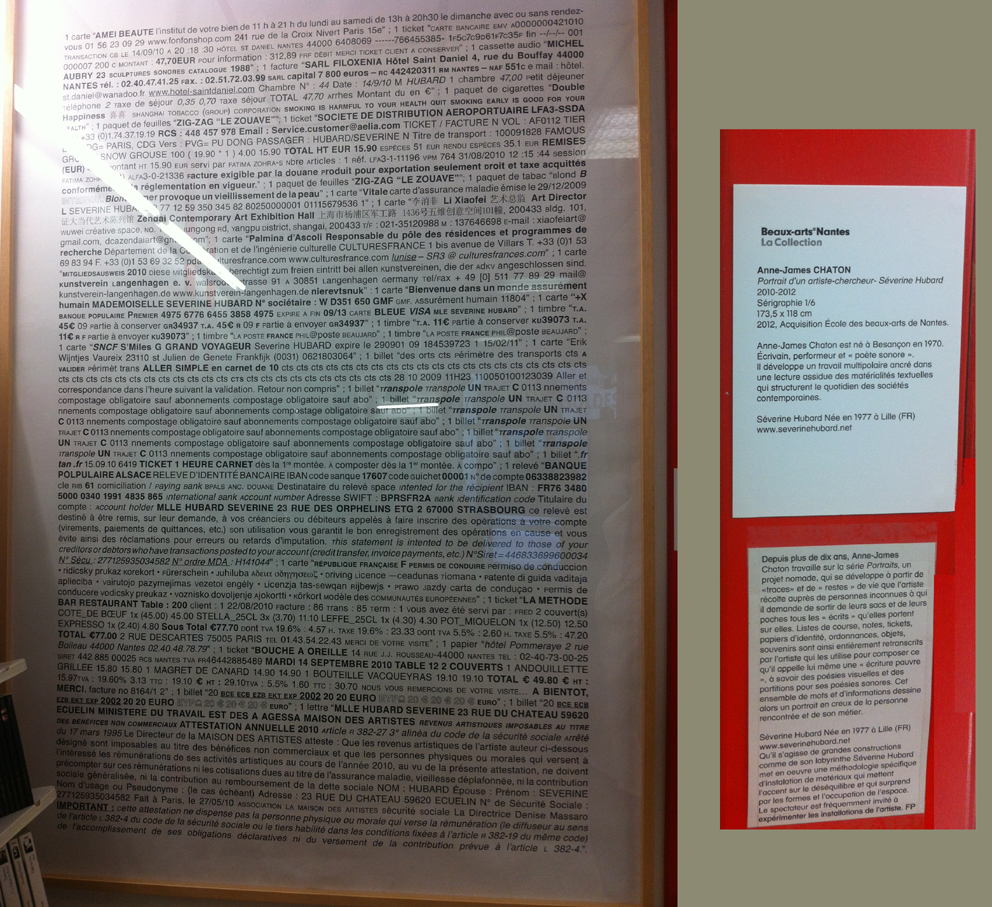 1 carte "AMEI BEAUTE l'institut de votre bien de 11 h à 21 h du lundi au samedi de 13h à 20h30 le dimanche avec ou sans rendez-
vous 01 56 23 09 29 www.fonfonshop.com 241 rue de la Croix Nivert Paris 15e" ; 1 ticket "CARTE BANCAIRE EMV A0000000421010
TRANSACTION CB LE 14/09/10 A 20 :18 :30 HÔTEL ST DANIEL NANTES 44000 6408069
000007 200 C MONTANT : 47,70EUR Pour information : 312,89 FRF DÉBIT MERCI TICKET CLIENT A CONSERVER" ; 1 cassette audio "MICHEL
AUBRY 23 SCULPTURES SONORES CATALOGUE 1988" ; 1 facture "SARL FILOXENIA Hôtel Saint Daniel 4, rue du Bouffay 44000
NANTES Tél. : 02.40.47.41.25 Fax. : 02.51.72.03.99 SARL capital 7 800 euros – RC 442420311 RM NANTES – NAF 551C e mail : hôtel.
st.daniel@wanadoo.fr www.hotel-saintdaniel.com Chambre N° : 44 Date : 14/9/10 M HUBARD 1 chambre 47,00 Petit déjeuner
Téléphone 2 Taxe de séjour 0,35 0,70 Taxe séjour TOTAL 47,70 Arrhes Montant du en €" ; 1 paquet de cigarettes "Double
Happiness 喜喜 SHANGHAI TOBACCO (GROUP) CORPORATION SMOKING IS HARMFUL TO YOUR HEALTH QUIT SMOKING EARLY IS GOOD FOR YOUR
HEALTH" ; 1 paquet de feuilles "ZIG-ZAG "LE ZOUAVE"" ; 1 ticket "SOCIETE DE DISTRIBUTION AEROPORTUAIRE LFA3-SSDA
+33 (0)1.74.37.19.19 RCS : 448 457 978 Email : Service.customer@aelia.com TICKET / FACTURE N VOL : AF0112 TIER
PARIS, CDG Vers : PVG= PU DONG PASSAGER : HUBARD/SEVERINE N Titre de transport : 100091828 FAMOUS
SNOW GROUSE 100 ( 19.90 * 1 ) 4.00 15.90 TOTAL HT EUR 15.90 ESPÈCES 51 EUR RENDU ESPÈCES 35.1 EUR REMISES
(EUR) montant HT 15.90 EUR servi par FATIMA ZOHRA-S Nbre Articles : 1 Réf. LFA3-1-11196 VPM 764 31/08/2010 12 :15 :44 session
FATIMA.ZOHRA ALFA3-0-21336 Facture exigible par la douane Produit pour exportation seulement Droit et taxe acquittés
conformément à la réglementation en vigueur." ; 1 paquet de feuilles "ZIG-ZAG "LE ZOUAVE"" ; 1 paquet de tabac "elond B
Blond provoque un vieillissement de la peau" ; 1 carte "Vitale carte d'assurance maladie émise le 29/12/2009
L SEVERINE HUBARD 77 12 59 350 345 82 80250000001 01115679536 1" ; 1 carte "李消非 Li Xiaofei 艺术总监 Art Director
证大当代艺术陈列馆 Zendai Contemporary Art Exhibition Hall 上海市杨浦区军工路 1436号五维创意空间101幢, 200433 Bldg. 101,
wuwei creative space, No. jungong Rd, yangpu district, shangai, 200433 T/F : 021-35120988 M : 137646698 E-mail : xiaofeiart@
gmail.com, dcazendaiart@gmail.com" ; 1 carte "Palmina d'Ascoli Responsable du pôle des résidences et programmes de
recherche Département de la Coopération et de l'ingénierie culturelle CULTURESFRANCE 1 bis avenue de Villars T. +33 (0)1 53
69 83 94 F. +33 (0)1 53 69 32 52 pda@culturesfrance.com www.culturesfrance.com lunise – SR3 @ culturesfrances.com" ; 1 carte
"MITGLIEDSAUSWEIS 2010 Diese Mitgliedskarte berechtigt zum freien Eintritt bei allen Kunstvereinen, die der ADKV angeschlossen sind.
Kunstverein Langenhagen e. v. Walsroder Strasse 91 A 30851 Langenhagen Germany Tel/Fax + 49 [0] 511 77 89 29 mail@
kunstverein-langenhagen.de www.kunstverein-langenhagen.de nierevtsnuk" ; 1 carte "Bienvenue dans un monde assurément
humain MADEMOISELLE SEVERINE HUBARD N° sociétaire : W D351 650 GMF GMF. Assurément humain 11804" ; 1 carte "+X
BANQUE POPULAIRE PREMIER 4975 6776 6455 3858 4975 EXPIRE A FIN 09/13 CARTE BLEUE VISA MLE SEVERINE HUBARD" ; 1 timbre "T.A.
45€ R 09 Partie à conserver GR34937 T.A. 45€ R 09 Partie à envoyer GR34937" ; 1 timbre "T.A. 11€ Partie à conserver KU39073 T.A.
11€ R F Partie à envoyer KU39073" ; 1 timbre "LA POSTE FRANCE PHIL@POSTE BEAUJARD" ; 1 timbre "LA POSTE FRANCE PHIL@POSTE BEAUJARD" ;
1 carte "SNCF S'Miles G GRAND VOYAGEUR Severine HUBARD expire le 290901 09 184539723 1 15/02/11" ; 1 carte "Erik
Wijntjes Vaureix 23110 St Julien de Genete Frankfijk (0031) 0621803064" ; 1 billet "des orts cts Périmètre des transports cts A
VALIDER Périmèt trans ALLER SIMPLE en carnet de 10 cts cts cts cts cts cts cts cts cts cts cts cts cts cts cts cts cts cts cts
cts cts cts cts cts cts cts cts cts cts cts cts cts cts cts 28 10 2009 11H23 110050100123039 Aller et
correspondance dans l'heure suivant la validation. Retour non compris" ; 1 billet "Transpole Transpole UN TRAJET C 0113 nnements
compostage obligatoire sauf abonnements compostage obligatoire sauf abo" ; 1 billet "Transpole Transpole UN TRAJET C 0113
nnements compostage obligatoire sauf abonnements compostage obligatoire sauf abo" ; 1 billet "Transpole Transpole UN TRAJET
C 0113 nnements compostage obligatoire sauf abonnements compostage obligatoire sauf abo" ; 1 billet "Transpole Transpole UN
TRAJET C 0113 nnements compostage obligatoire sauf abonnements compostage obligatoire sauf abo" ; 1 billet "Transpole Transpole
UN TRAJET C 0113 nnements compostage obligatoire sauf abonnements compostage obligatoire sauf abo" ; 1 billet "Transpole
Transpole UN TRAJET C 0113 nnements compostage obligatoire sauf abonnements compostage obligatoire sauf abo" ; 1 billet ".fr
tan .fr 15.09.10 6419 TICKET 1 HEURE CARNET dès la 1re montée. A composter dès la 1re montée. A compo" ; 1 relevé "BANQUE
POLPULAIRE ALSACE RELEVE D'IDENTITÉ BANCAIRE IBAN code banque 17607 code guichet 00001 N° de compte 06338823982
clé RIB 61 Domiciliation / Paying bank BPALS ANC. DOUANE Destinataire du relevé space intented for the recipient IBAN : FR76 3480
5000 0340 1991 4835 865 International bank Account Number Adresse SWIFT : BPRSFR2A Bank identification code Titulaire du
compte : Account holder MLLE HUBARD SEVERINE 23 RUE DES ORPHELINS ETG 2 67000 STRASBOURG Ce relevé est
destiné à être remis, sur leur demande, à vos créanciers ou débiteurs appelés à faire inscrire des opérations à votre compte
(virements, paiements de quittances, etc.) son utilisation vous garantit le bon enregistrement des opérations en cause et vous
évite ainsi des réclamations pour erreurs ou retards d'imputation. This statement is intended to be delivered to those of your
creditors or debtors who have transactions posted to your account (credit transfer, invoice payments, etc.) N°Siret=446833699600034
N° Sécu : 277125935034582 N° ordre MDA : H141044" ; 1 carte "REPUBLIQUE FRANÇAISE F PERMIS DE CONDUIRE Permiso de conduccion
• Ridicsky prukaz Korekort • Fürerschein • Juhiluba Αδεια οδηγησεως • Driving Licence – Ceadunas Tiomana • Patente di guida Vaditaja
apliecïba • Vairutojo pazymejimas Vezetoi engély • Licenzja tas-sewqan Rijbewijs • Prawo Jazdy Carta de conduçao • Permis de
conducere Vodicsky preukaz • Voznisko dovoljenje Ajokortti • Körkort Modèle des COMMUNAUTÉS EUROPÉENNES" ; 1 ticket "LA METHODE
BAR RESTAURANT Table : 200 client : 1 22/08/2010 Facture : 86 Trans : 85 Term : 1 Vous avez été servi par : FRED 2 couvert(s)
COTE_DE BŒUF 1x (45.00) 45.00 STELLA_25CL 3x (3.70) 11.10 LEFFE_25CL 1x (4.30) 4.30 POT_MIQUELON 1x (12.50) 12.50
EXPRESSO 1x (2.40) 4.80 Sous Total €77.70 Dont TVA 19.6% : 4.57 H. TAXE 19.6% : 23.33 Dont TVA 5.5% : 2.60 H. TAXE 5.5% : 47.20
TOTAL €77.00 2 RUE DESCARTES 75005 PARIS TEL 01.43.54.22.43 MERCI DE VOTRE VISITE" ; 1 papier "hôtel Pommeraye 2 rue
Boileau 44000 Nantes 02.40.48.78.79" ; 1 ticket "BOUCHE A OREILLE 14 RUE J.J. ROUSSEAU-44000 NANTES TEL : 02-40-73-00-25
SIRET 442 885 00025 RCS NANTES TVA FR46442885489 MARDI 14 SEPTEMBRE 2010 TABLE 12 2 COUVERTS 1 ANDOUILLETTE
GRILLEE 15.80 15.80 1 MAGRET DE CANARD 14.90 14.90 1 BOUTEILLE VACQUEYRAS 19.10 19.10 TOTAL € 49.80 € HT :
15.97TVA : 19.60% 3.13 TTC : 19.10 € HT : 29.10TVA : 5.5% 1.60 TTC : 30.70 NOUS VOUS REMERCIONS DE VOTRE VISITE... A BIENTOT,
MERCI. Facture no 8164/1 2" ; 1 billet "20 BCE ECB EZB EKT EKP 2002 20 20 EURO EYPΩ 20 € 20 € 20 € EURO" ; 1 billet "20 BCE ECB
EZB EKT EKP 2002 20 20 EURO EYPΩ 20 € 20 € 20 € EURO" ; 1 lettre "MLLE HUBARD SEVERINE 23 RUE DU CHATEAU 59620
ECUELIN MINISTERE DU TRAVAIL EST DES A AGESSA MAISON DES ARTISTES REVENUS ARTISTIQUES IMPOSABLES AU TITRE
DES BÉNÉFICES NON COMMERCIAUX ATTESTATION ANNUELLE 2010 Article R 382-27 3° alinéa du code de la sécurité sociale Arrêté
du 17 mars 1995 Le Directeur de La MAISON DES ARTISTES atteste : Que les revenus artistiques de l'artiste auteur ci-dessous
désigné sont imposables au titre des bénéfices non commerciaux et que les personnes physiques ou morales qui versent à
l'intéressé les rémunérations de ses activités artistiques au cours de l'année 2010, au vu de la présente attestation, ne doivent
précompter sur ces rémunérations ni les cotisations dues au titre de l'assurance maladie, vieillesse déplafonnée, ni la contribution
sociale généralisée, ni la contribution au remboursement de la dette sociale NOM : HUBARD Épouse : Prénom : SEVERINE
Nom d'usage ou Pseudonyme : (le cas échéant) Adresse : 23 RUE DU CHATEAU 59620 ECUELIN N° de Sécurité Sociale :
27712593503​4582 Fait à Paris, le 27/05/10 ASSOCIATION LA MAISON DES ARTISTES sécurité sociale La Directrice Denise Massaro
IMPORTANT : cette attestation ne dispense pas la personne physique ou morale qui verse la rémunération (le diffuseur au sens
de l'article L 382-4 du code de la sécurité sociale ou le tiers habilité dans les conditions fixées à l'article R 382-19 du même code)
de l'accomplissement de ses obligations déclaratives ni du versement de la contribution prévue à l'article L 382-4.".
Beaux-arts Nantes
La Collection
Anne-James CHATON
Portrait d'un artiste-chercheur- Séverine Hubard
2010-2012
Sérigraphie 1/6
173,5 x 118 cm
2012, Acquisition École des beaux-arts de Nantes.
Anne-James Chaton est né à Besançon en 1970.
Écrivain, performeur et « poète sonore ».
Il développe un travail multipolaire ancré dans
une lecture assidue des matérialités textuelles
qui structurent le quotidien des sociétés
contemporaines.
Séverine Hubard Née en 1977 à Lille (FR)
www.severinehubard.net
Depuis plus de dix ans, Anne-James
Chaton travaille sur la série Portraits, un
projet nomade, qui se développe à partir de
«traces» et de « restes » de vie que l'artiste
récolte auprès de personnes inconnues à qui
il demande de sortir de leurs sacs et de leurs
poches tous les « écrits » qu'elles portent
sur elles. Listes de course, notes, tickets,
papiers d'identité, ordonnances, objets,
souvenirs sont ainsi entièrement retranscrits
par l'artiste qui les utilise pour composer ce
qu'il appelle lui même une « écriture pauvre
», à savoir des poésies visuelles et des
partitions pour ses poésies sonores. Cet
ensemble de mots et d'informations dessine
alors un portrait en creux de la personne
rencontrée et de son métier.
Séverine Hubard Née en 1977 à Lille (FR)
www.severinehubard.net
Qu'il s'agisse de grandes constructions
comme de son labyrinthe Séverine Hubard
met en oeuvre une méthodologie spécifique
d'installation de matériaux qui mettent
l'accent sur le déséquilibre et qui surprend
par les formes et l'occupation de l'espace.
Le spectateur est fréquemment invité à
expérimenter les installations de l'artiste. FP